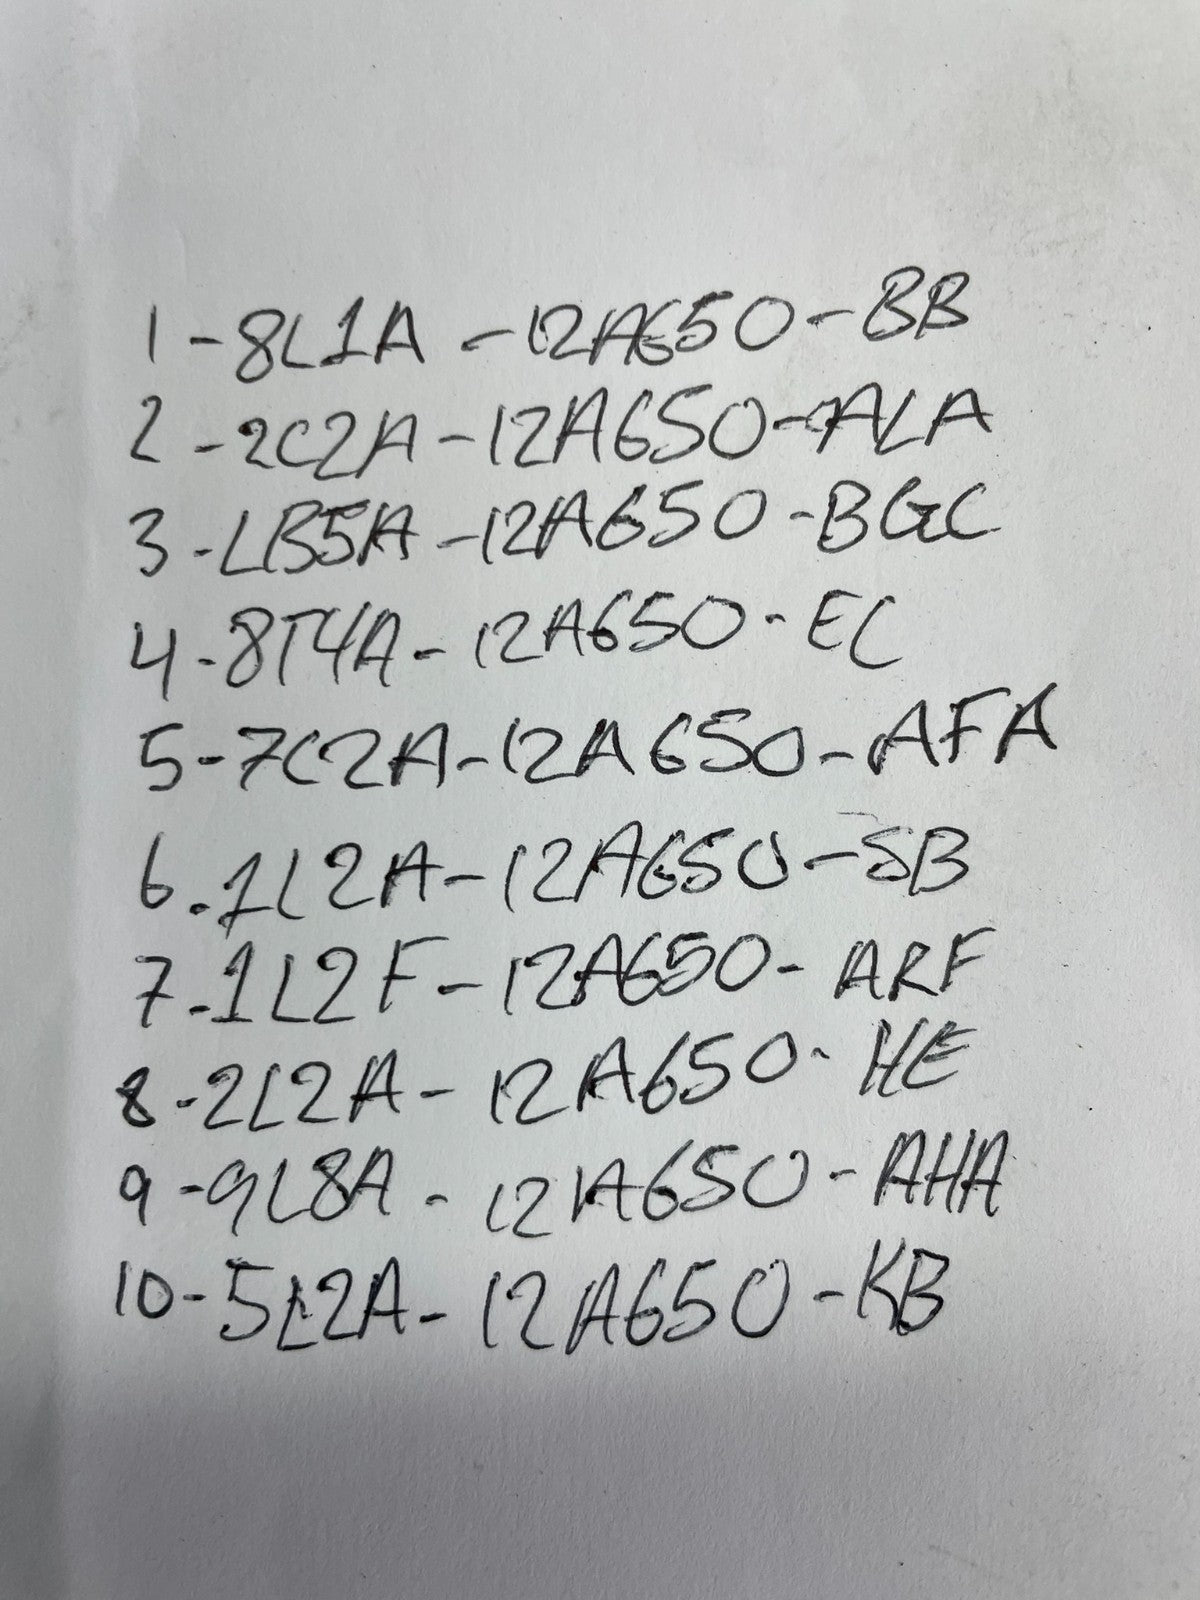 1-8L1A-12A650-BB
2-2C2A-12A650-ALA
3-LB5A-12A650-BGC
4-8T4A-12A650-EC
5-7C2A-12A650-AFA
6.1L2A-12A650-SB
7-1L2F-12A650-ARF
8-2L2A-12A650-HE
9-9L8A-12A650-AHA
10-5L2A-12A650-KB